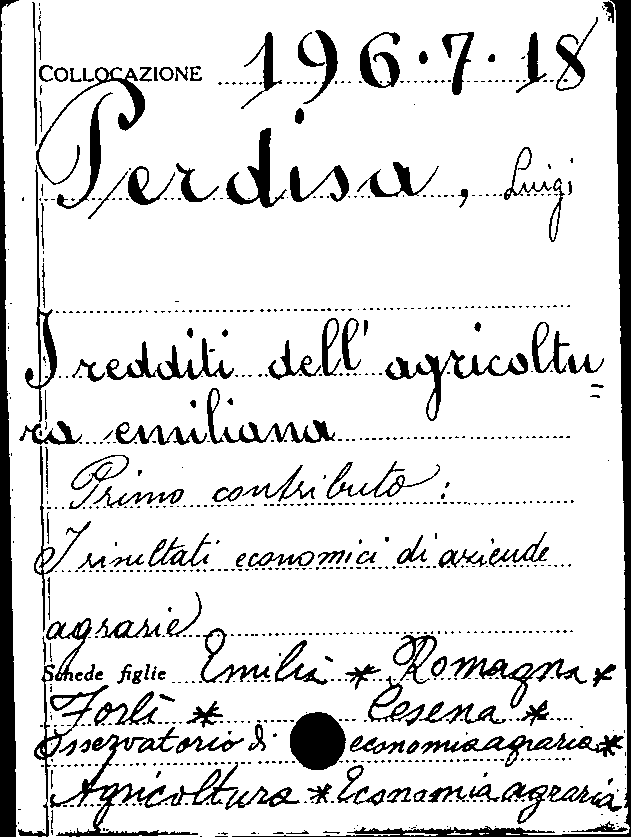 COLLOCAZIONE 196.7.18
Perdisa, Luigi
I redditi dell'agricoltu=
ra emiliana
Primo contributo:
I risultati economici di aziende
agrarie
Schede figlie Emilia * Romagna *
Forlì * Cesena *
Osservatorio di economia agraria *
Agricoltura * Economia agraria